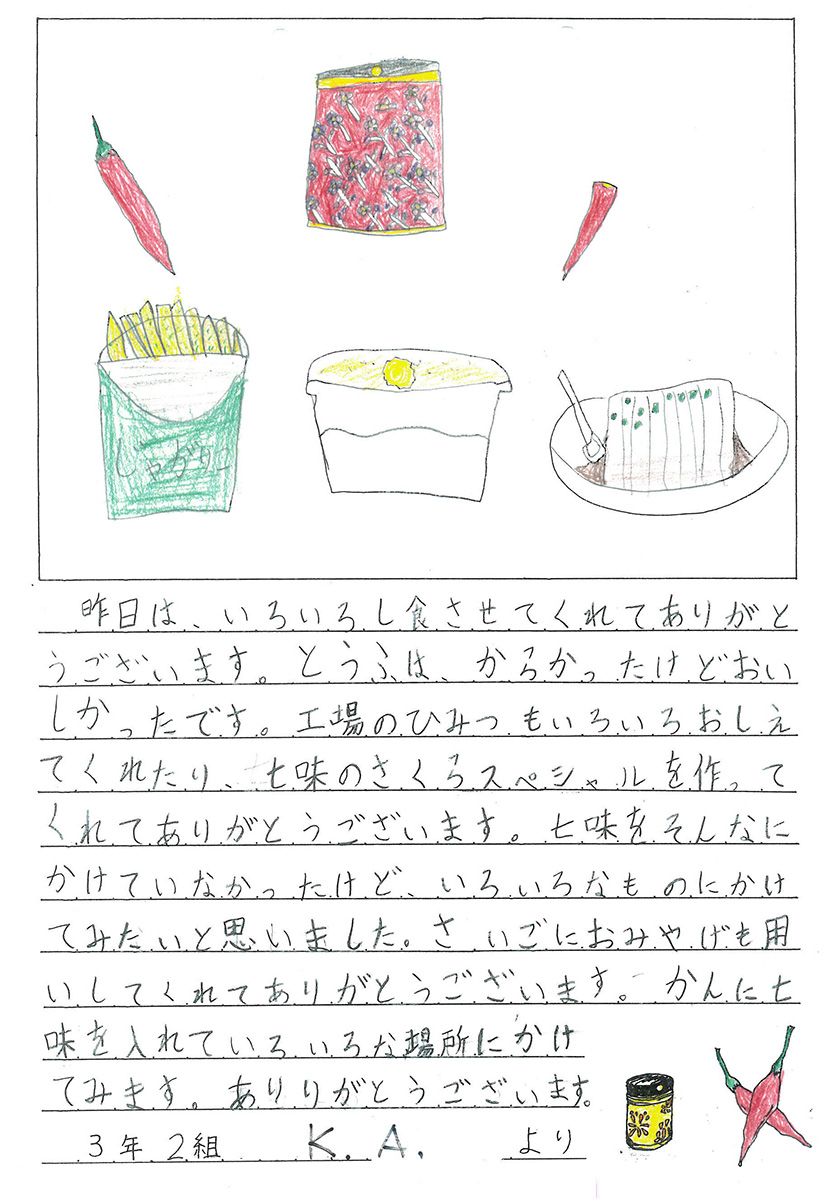 じゃがりー
昨日は、いろいろし食させてくれてありがと
うございます。とうふは、からかったけどおい
しかったです。工場のひみつもいろいろおしえ
てくれたり、七味のさくらスペシャルを作って
くれてありがとうございます。七味をそんなに
かけていなかったけど、いろいろなものにかけ
てみたいと思いました。さいごにおみやげも用
いしてくれてありがとうございます。かんに七
味を入れていろいろな場所にかけ
てみます。ありりがとうございます。
3年2組 K.A. より